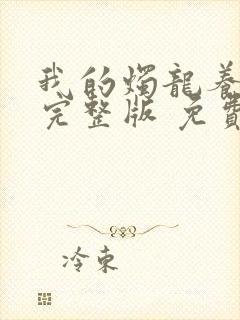 我的燭龍養
完整版 免費
冷東